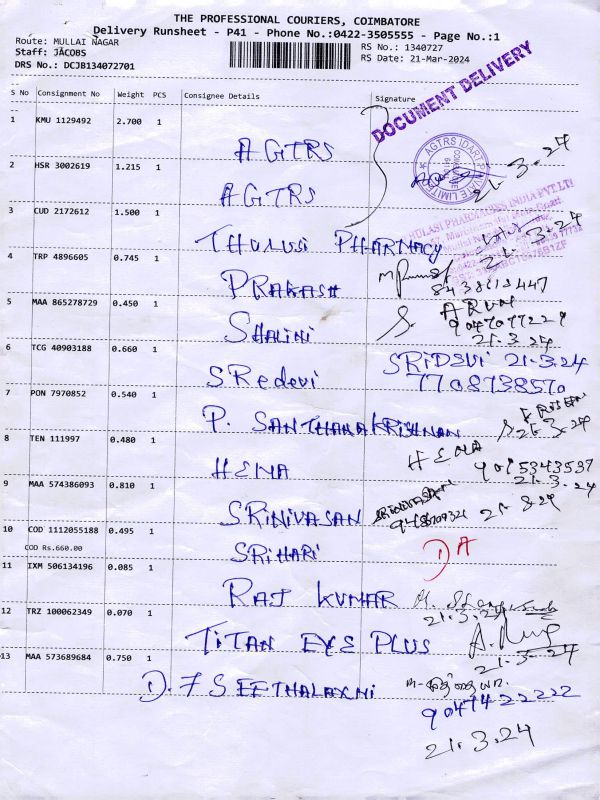 THE PROFESSIONAL COURIERS, COIMBATORE
Delivery Runsheet - P41 - Phone No.:0422-3505555 - Page No.:1
Route: MULLAI NAGAR
Staff: JACOBS
DRS No.: DCJB134072701
RS No.: 1340727
RS Date: 21-Mar-2024
DOCUMENT DELIVERY
S No Consignment No Weight PCS Consignee Details Signature
1 KMU 1129492 2.700 1
AGTRS
21-3-24
2 HSR 3002619 1.215 1
AGTRS
3 CUD 2172612 1.500 1
THULUSI PHARMACY
21-3-24
4 TRP 4896605 0.745 1
PRAKASH
5 MAA 865278729 0.450 1
SHALINI
ARUN
21.3.24
6 TCG 40903188 0.660 1
SRedevi
SRIDEVI 21-3-24
7708738570
7 PON 7970852 0.540 1
P. SANTHANAKRISHNAN
21-3-24
8 TEN 111997 0.480 1
HENA
HENA
9015343537
21-3-24
9 MAA 574386093 0.810 1
SRINIVASAN
SRINIVASAN
21-3-24
10 COD 1112055188 0.495 1
COD Rs.660.00
SRIHARI
DA
11 IXM 506134196 0.085 1
RAJ KUMAR
21-3-24
12 TRZ 100062349 0.070 1
TITAN EYE PLUS
21-3-24
13 MAA 573689684 0.750 1
9047422222
21.3.24